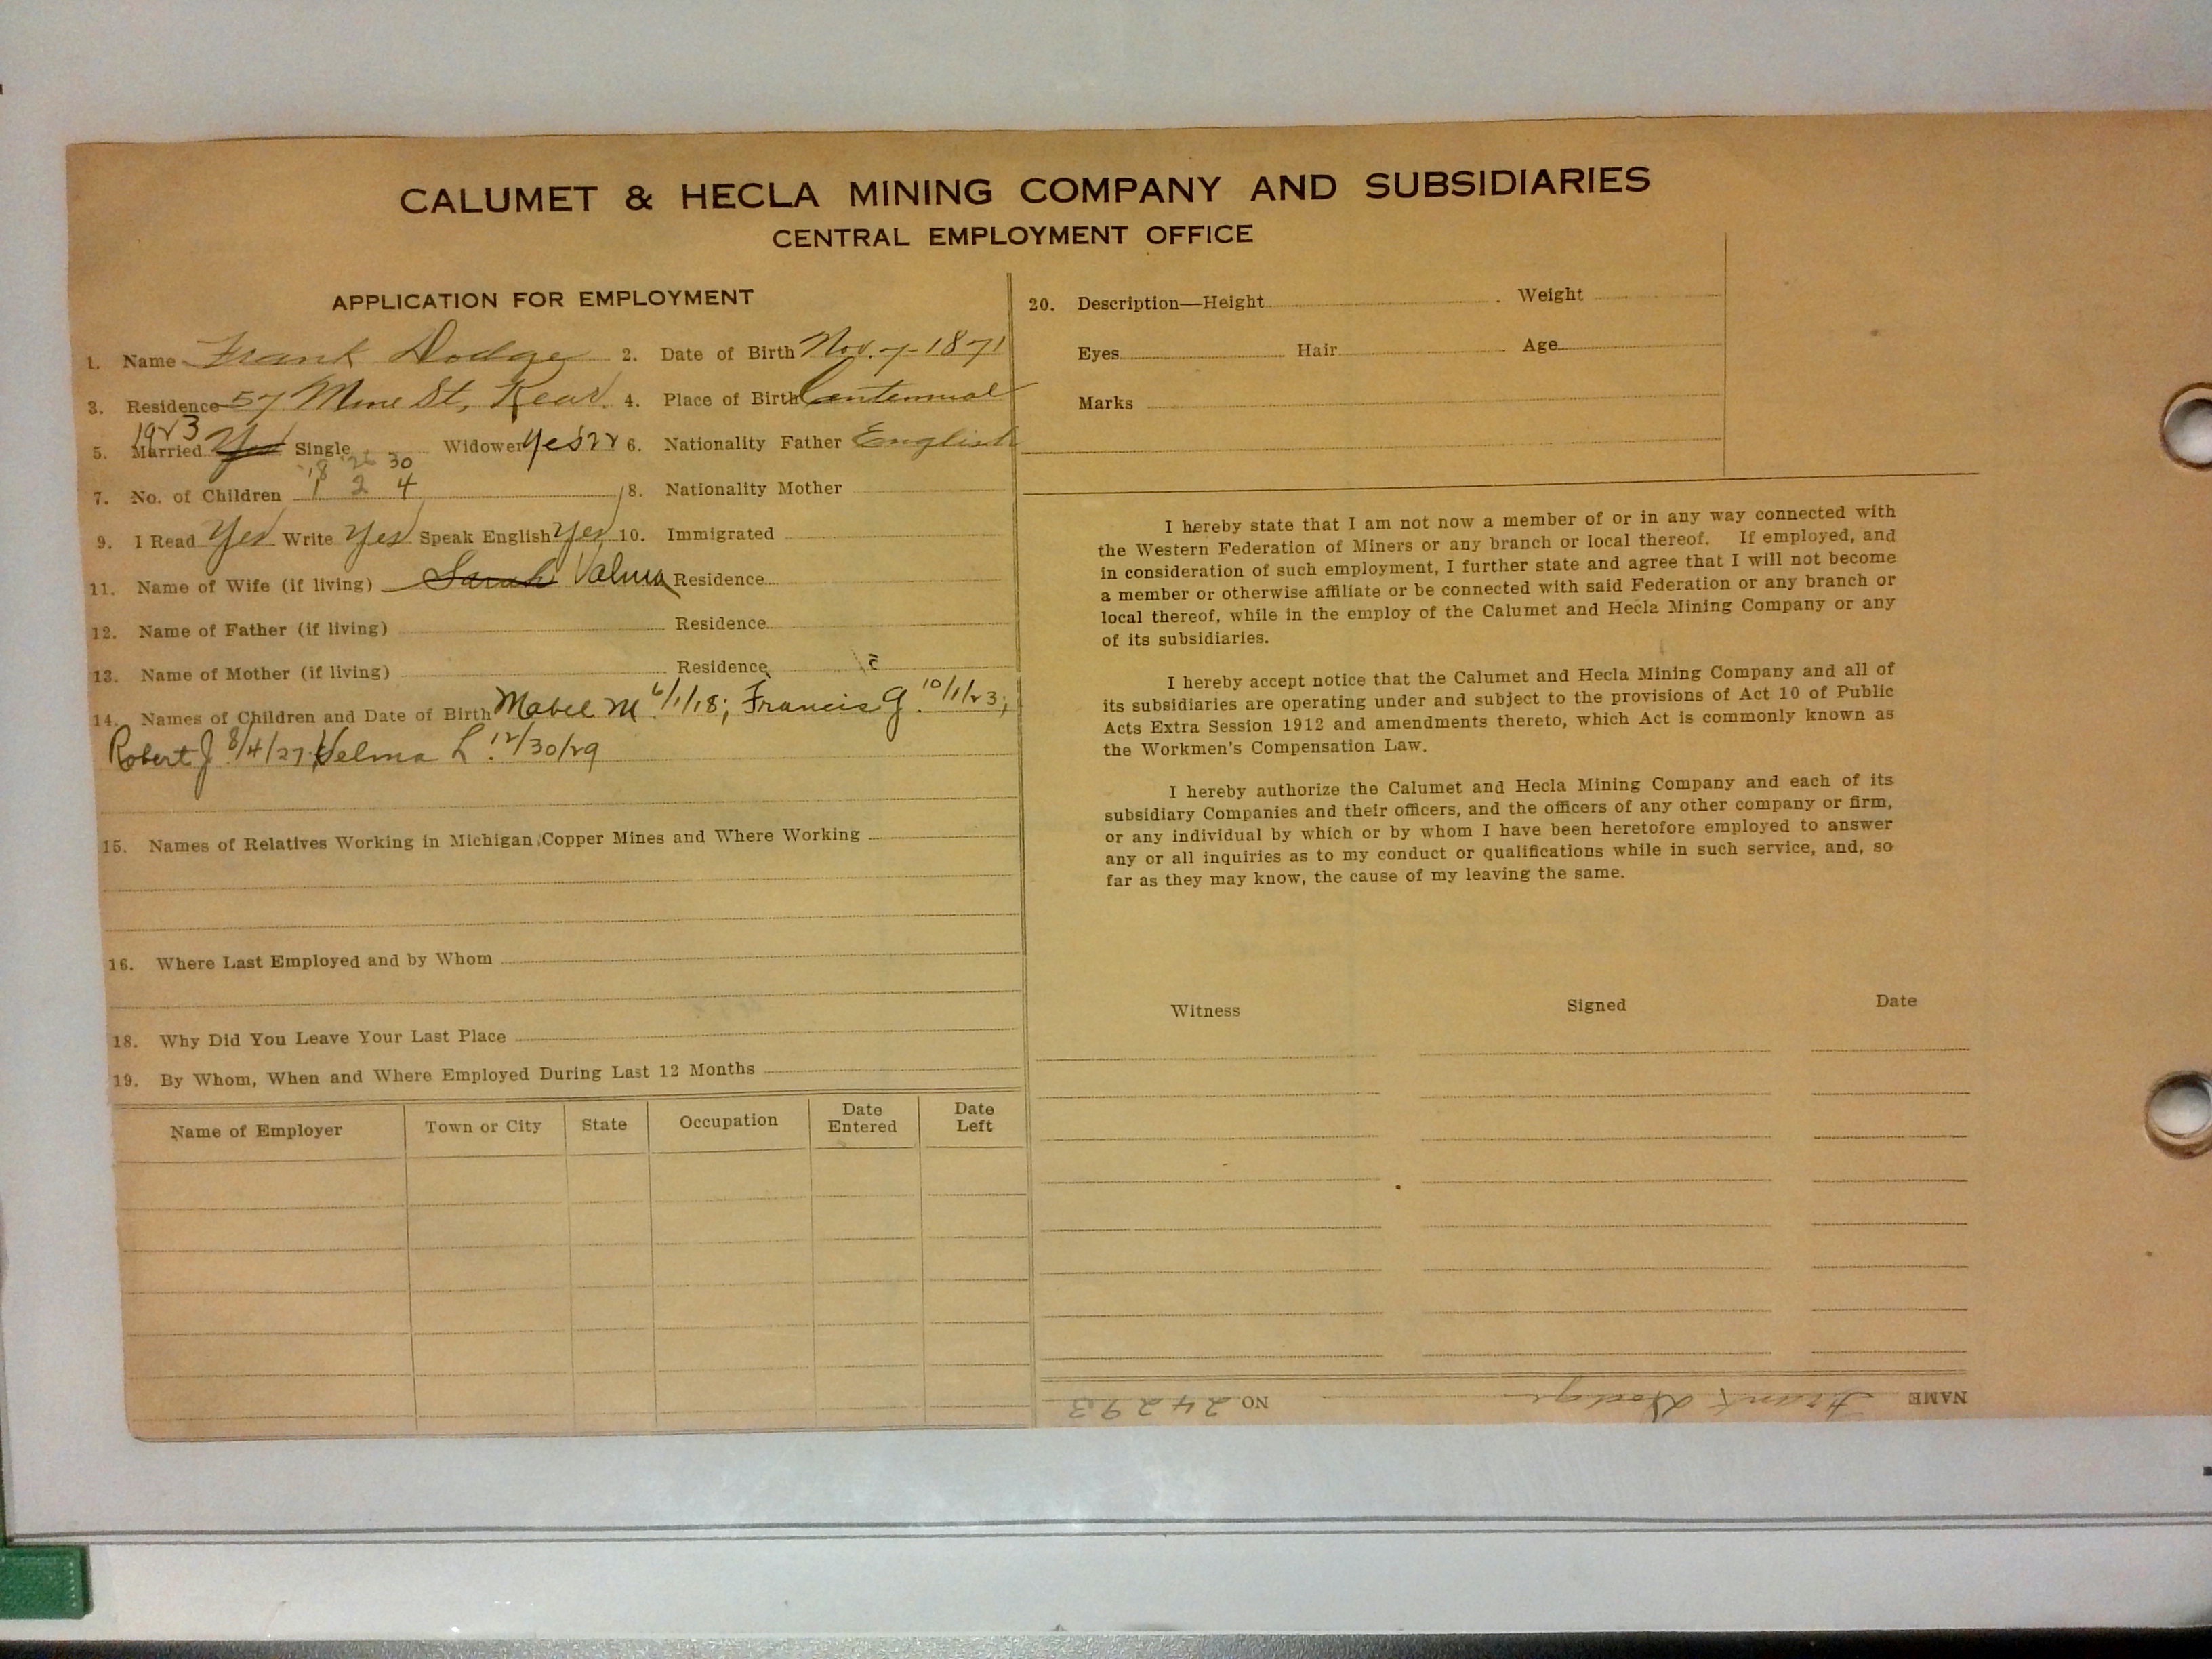 CALUMET & HECLA MINING COMPANY AND SUBSIDIARIES
CENTRAL EMPLOYMENT OFFICE
APPLICATION FOR EMPLOYMENT
1. Name Frank Dodge 2. Date of Birth Nov. 7-1871
3. Residence 57 Mine St, Kear. 4. Place of Birth Centennial
1923
5. Married Yes Single Widower Yes 22 6. Nationality Father English
'18 '26 30
7. No. of Children 1 2 4 8. Nationality Mother
9. I Read Yes Write Yes Speak English Yes 10. Immigrated
11. Name of Wife (if living) Sarah Valma Residence
12. Name of Father (if living) Residence
13. Name of Mother (if living) Residence
14. Names of Children and Date of Birth Mabel M. 6/1/18; Francis G. 10/1/23;
Robert J. 8/4/27; Selma L. 12/30/29
15. Names of Relatives Working in Michigan Copper Mines and Where Working
16. Where Last Employed and by Whom
18. Why Did You Leave Your Last Place
19. By Whom, When and Where Employed During Last 12 Months
Name of Employer Town or City State Occupation Date Entered Date Left
20. Description—Height Weight
Eyes Hair Age
Marks
I hereby state that I am not now a member of or in any way connected with
the Western Federation of Miners or any branch or local thereof. If employed, and
in consideration of such employment, I further state and agree that I will not become
a member or otherwise affiliate or be connected with said Federation or any branch or
local thereof, while in the employ of the Calumet and Hecla Mining Company or any
of its subsidiaries.
I hereby accept notice that the Calumet and Hecla Mining Company and all of
its subsidiaries are operating under and subject to the provisions of Act 10 of Public
Acts Extra Session 1912 and amendments thereto, which Act is commonly known as
the Workmen's Compensation Law.
I hereby authorize the Calumet and Hecla Mining Company and each of its
subsidiary Companies and their officers, and the officers of any other company or firm,
or any individual by which or by whom I have been heretofore employed to answer
any or all inquiries as to my conduct or qualifications while in such service, and, so
far as they may know, the cause of my leaving the same.
Witness Signed Date
NAME Frank Dodge NO. 24293